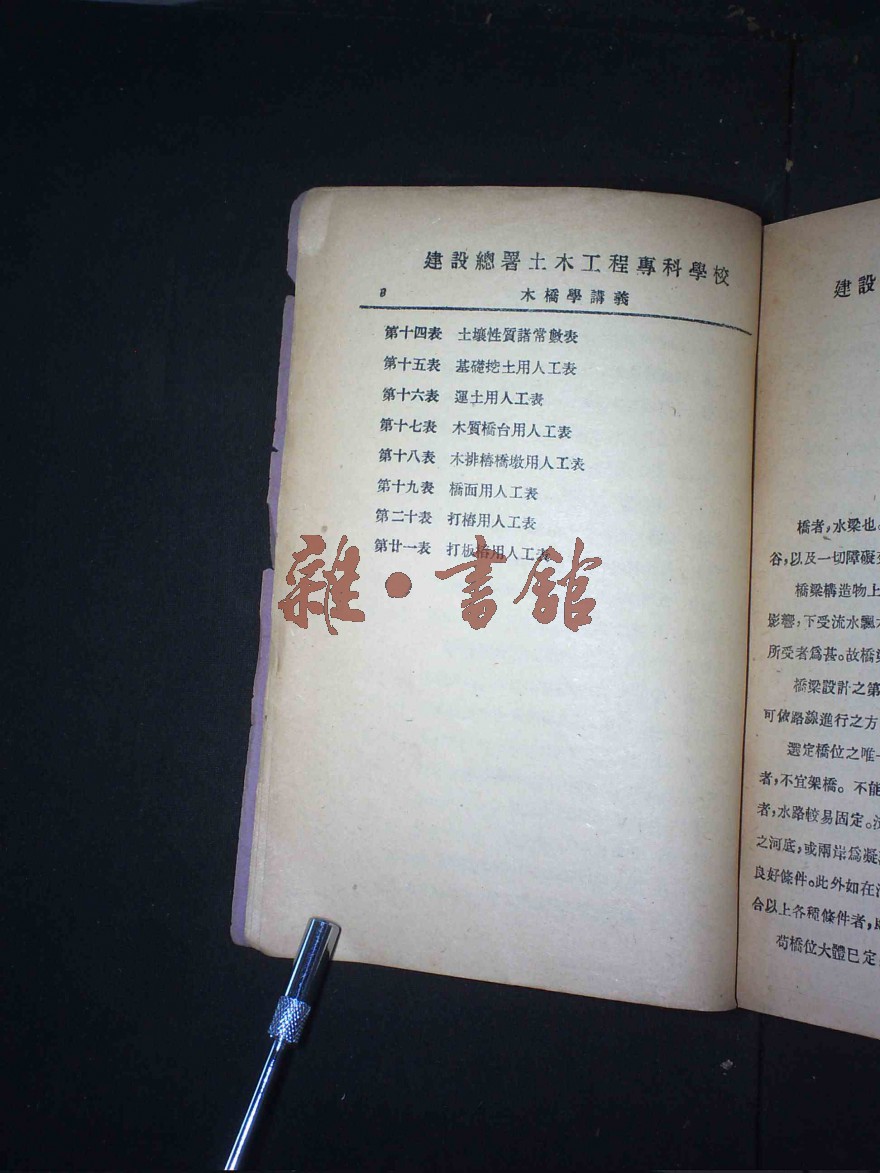 建設總署土木工程專科學校
8
木橋學講義
第十四表 土壤性質諸常數表
第十五表 基礎挖土用人工表
第十六表 運土用人工表
第十七表 木質橋台用人工表
第十八表 木排樁橋墩用人工表
第十九表 橋面用人工表
第二十表 打樁用人工表
第廿一表 打板樁用人工表
雜·書館
建設
橋者,水梁也。
谷,以及一切障礙
橋梁構造物上
影響,下受流水飄
所受者爲甚。故橋
橋梁設計之第
可依路線進行之方
選定橋位之唯一
者,不宜架橋。不能
者,水路較易固定。
之河底,或兩岸爲凝
良好條件。此外如在
合以上各種條件者,
苟橋位大體已定